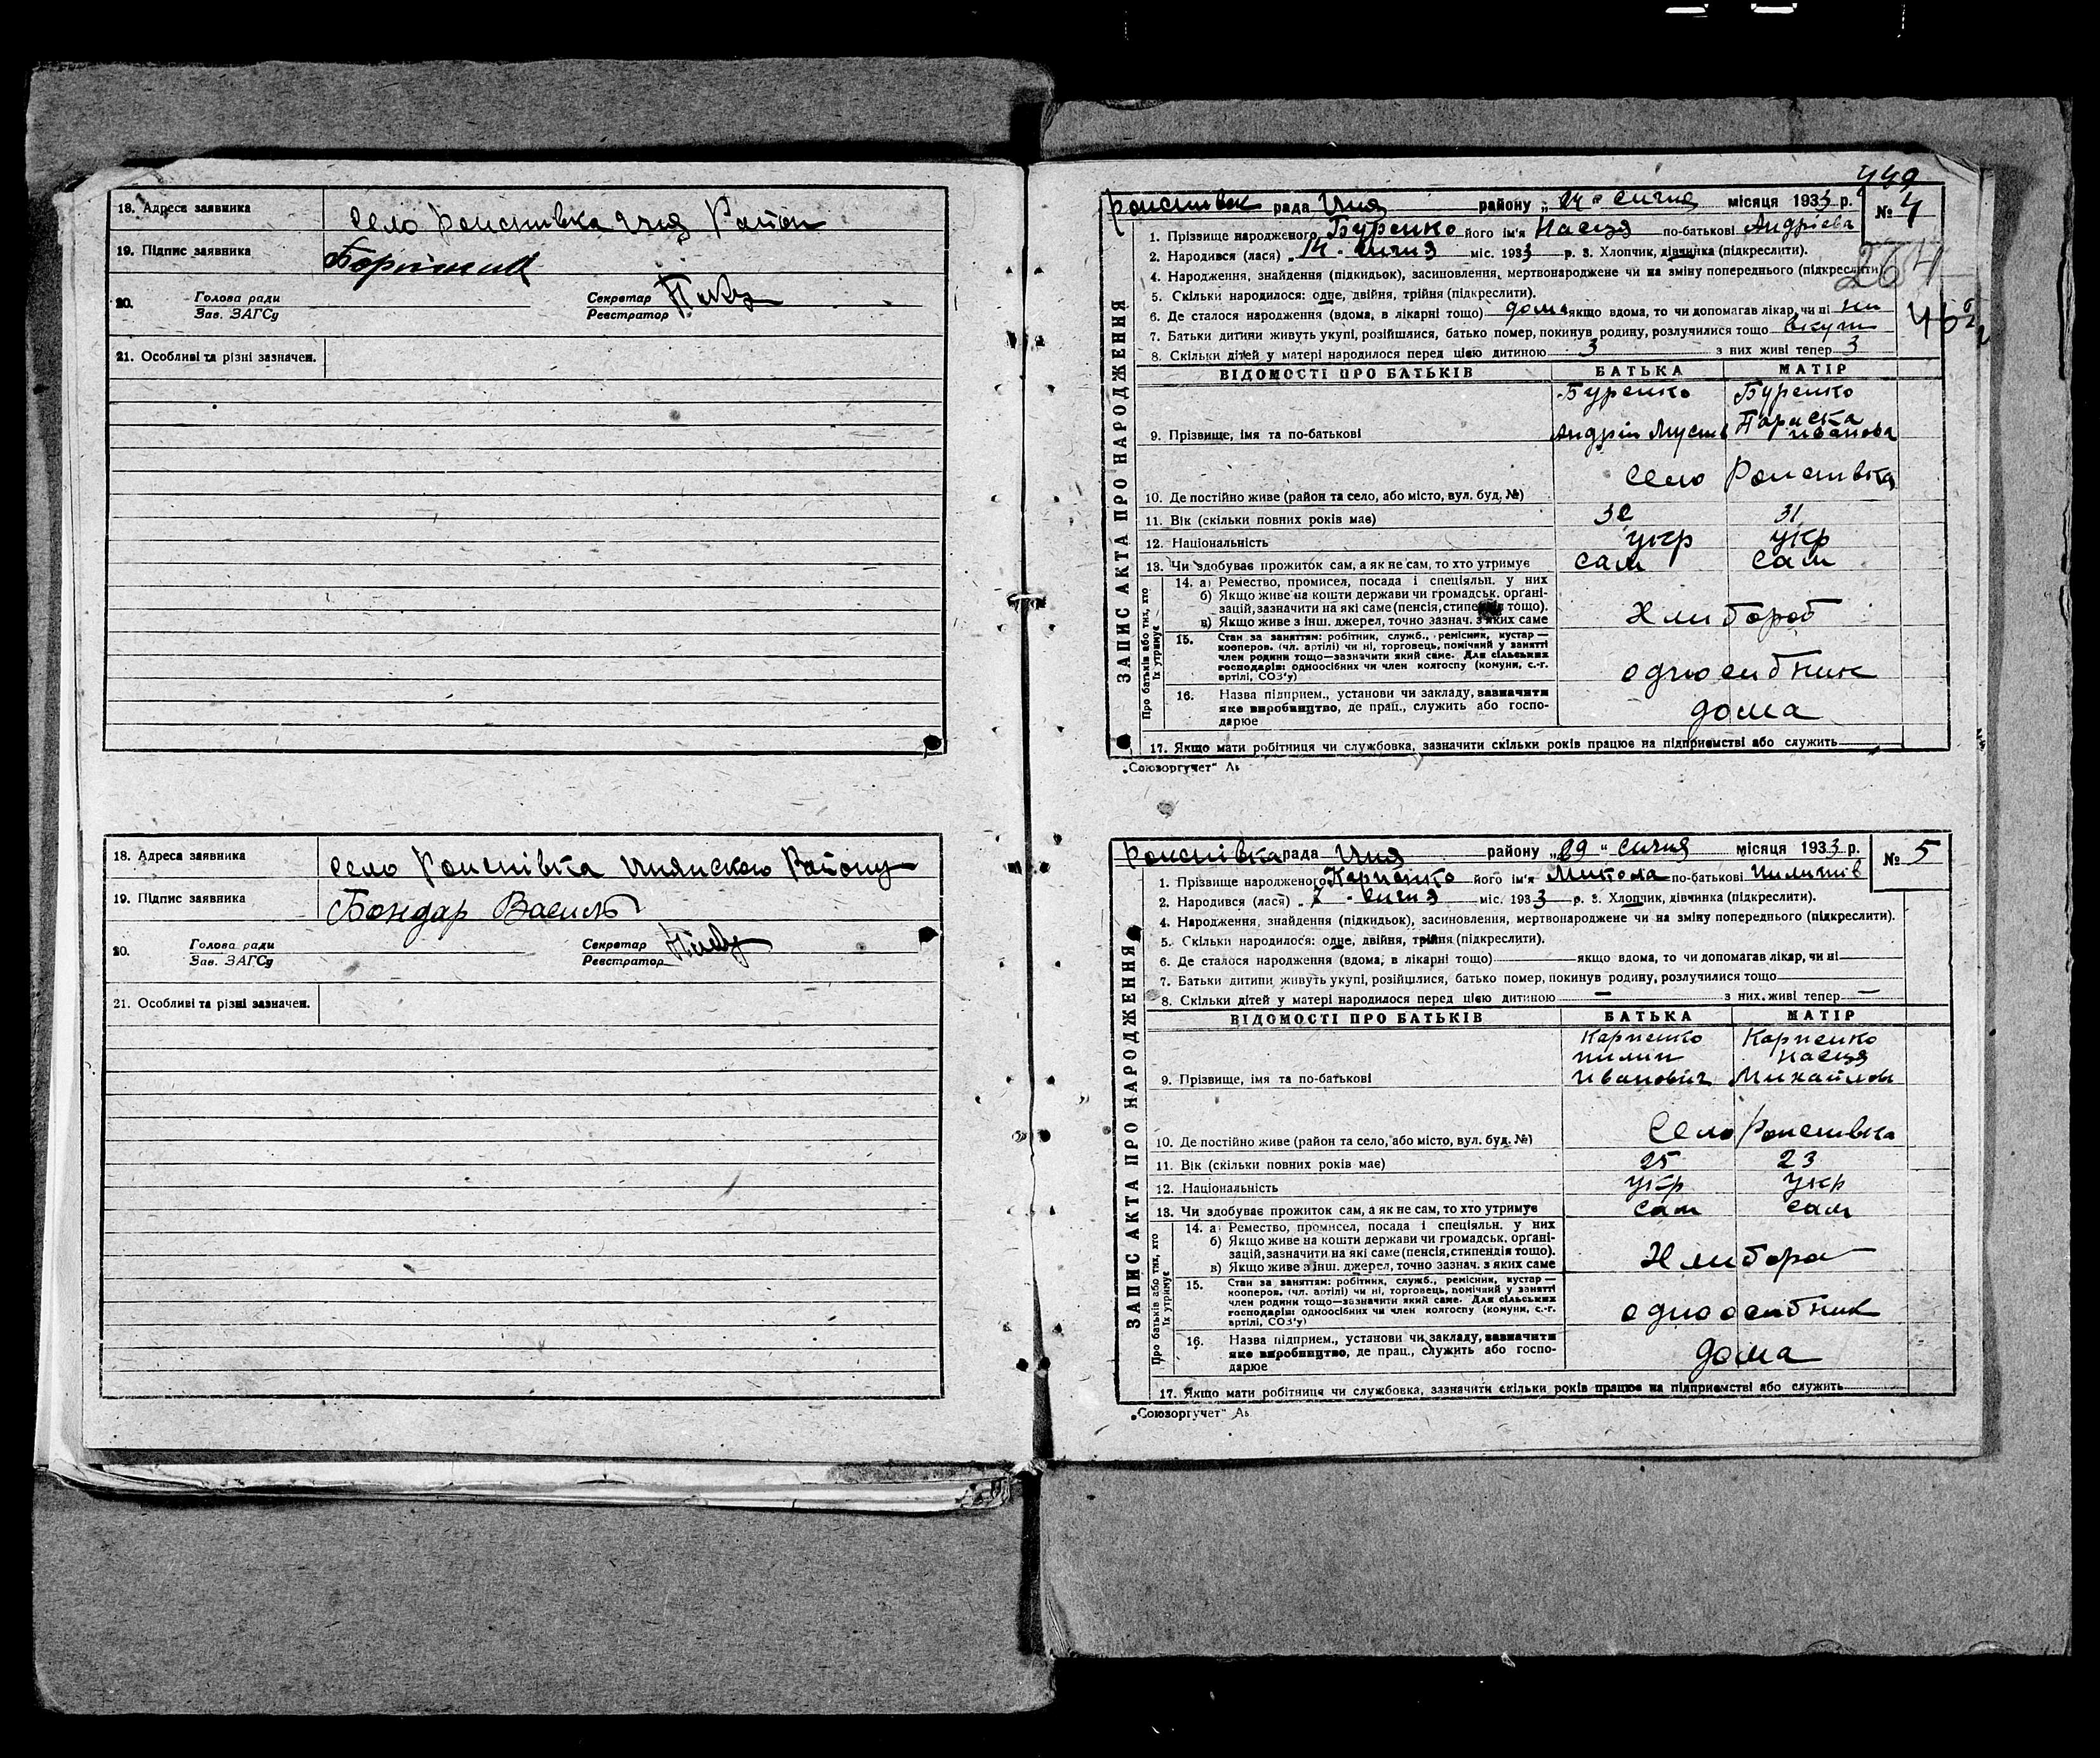 18. Адреса заявника село Роиствка Ичя Район
19. Підпис заявника
20. Голова ради Секретар
Зав. ЗАГСу Реєстратор
21. Особливі та різні зазначен.
18. Адреса заявника село Роистівка Ичянского Району
19. Підпис заявника Бондар Василь
20. Голова ради Секретар
Зав. ЗАГСу Реєстратор
21. Особливі та різні зазначен.
449
рада Ичя району „24" сичня місяця 1933 р. № 4
1. Прізвище народженого Буренко його ім'я Насця по-батькові Андріева
2. Народився (лася) „14" сичня міс. 1933 р. 3. Хлопчик, дівчинка (підкреслити).
264
4. Народження, знайдення (підкидьок), засиновлення, мертвонароджене чи на зміну попереднього (підкреслити)
5. Скільки народилося: одне, двійня, трійня (підкреслити).
6. Де сталося народження (вдома, в лікарні тощо) дома якщо вдома, то чи допомагав лікар, чи ні ни
7. Батьки дитини живуть укупі, розійшлися, батько помер, покинув родину, розлучилися тощо вкупи
8. Скільки дітей у матері народилося перед цією дитиною 3 з них живі тепер 3
ЗАПИС АКТА ПРО НАРОДЖЕННЯ
ВІДОМОСТІ ПРО БАТЬКІВ БАТЬКА МАТІР
Буренко Буренко
9. Прізвище, імя та по-батькові Андрій Параска Иванова
10. Де постійно живе (район та село, або місто, вул. буд. №) село Роиствка
11. Вік (скільки повних років має) 32 31
12. Національність укр укр
13. Чи здобуває прожиток сам, а як не сам, то хто утримує сам сам
Про батьків або тих, хто їх утримує
14. а) Ремество, промисел, посада і спеціяльн. у них
б) Якщо живе на кошти держави чи громадськ. органі-
зацій, зазначити на які саме (пенсія, стипендія тощо).
в) Якщо живе з інш. джерел, точно зазнач. з яких саме
Хлибороб
15. Стан за заняттям: робітник, служб., ремісник, кустар —
кооперов. (чл. артілі) чи ні, торговець, помічний у занятті
член родини тощо—зазначити який саме. Для сільських
господарів: одноосібних чи член колгоспу (комуни, с.-г.
артілі, СОЗ'у)
односибник
16. Назва підприєм., установи чи закладу, зазначити
яке виробництво, де прац., служить або госпо-
дарює
дома
17. Якщо мати робітниця чи службовка, зазначити скільки років працює на підприємстві або служить
„Союзоргучет"
Роистівка рада Ичя району „29" сичня місяця 1933 р. № 5
1. Прізвище народженого Карпенко його ім'я Микола по-батькові Пилипів
2. Народився (лася) „7" сичня міс. 1933 р. 3. Хлопчик, дівчинка (підкреслити).
4. Народження, знайдення (підкидьок), засиновлення, мертвонароджене чи на зміну попереднього (підкреслити).
5. Скільки народилося: одне, двійня, трійня (підкреслити).
6. Де сталося народження (вдома, в лікарні тощо) якщо вдома, то чи допомагав лікар, чи ні
7. Батьки дитини живуть укупі, розійшлися, батько помер, покинув родину, розлучилися тощо
8. Скільки дітей у матері народилося перед цією дитиною — з них живі тепер —
ЗАПИС АКТА ПРО НАРОДЖЕННЯ
ВІДОМОСТІ ПРО БАТЬКІВ БАТЬКА МАТІР
Карпенко Карпенко
Пилип Насця
9. Прізвище, імя та по-батькові Иванович Михайлов
10. Де постійно живе (район та село, або місто, вул. буд. №) Село Роиствка
11. Вік (скільки повних років має) 25 23
12. Національність укр укр
13. Чи здобуває прожиток сам, а як не сам, то хто утримує сам сам
Про батьків або тих, хто їх утримує
14. а) Ремество, промисел, посада і спеціяльн. у них
б) Якщо живе на кошти держави чи громадськ. органі-
зацій, зазначити на які саме (пенсія, стипендія тощо).
в) Якщо живе з інш. джерел, точно зазнач. з яких саме
Хлибороб
15. Стан за заняттям: робітник, служб., ремісник, кустар —
кооперов. (чл. артілі) чи ні, торговець, помічний у занятті
член родини тощо—зазначити який саме. Для сільських
господарів: одноосібних чи член колгоспу (комуни, с.-г.
артілі, СОЗ'у)
односибник
16. Назва підприєм., установи чи закладу, зазначити
яке виробництво, де прац., служить або госпо-
дарює
дома
17. Якщо мати робітниця чи службовка, зазначити скільки років працює на підприємстві або служить
„Союзоргучет"